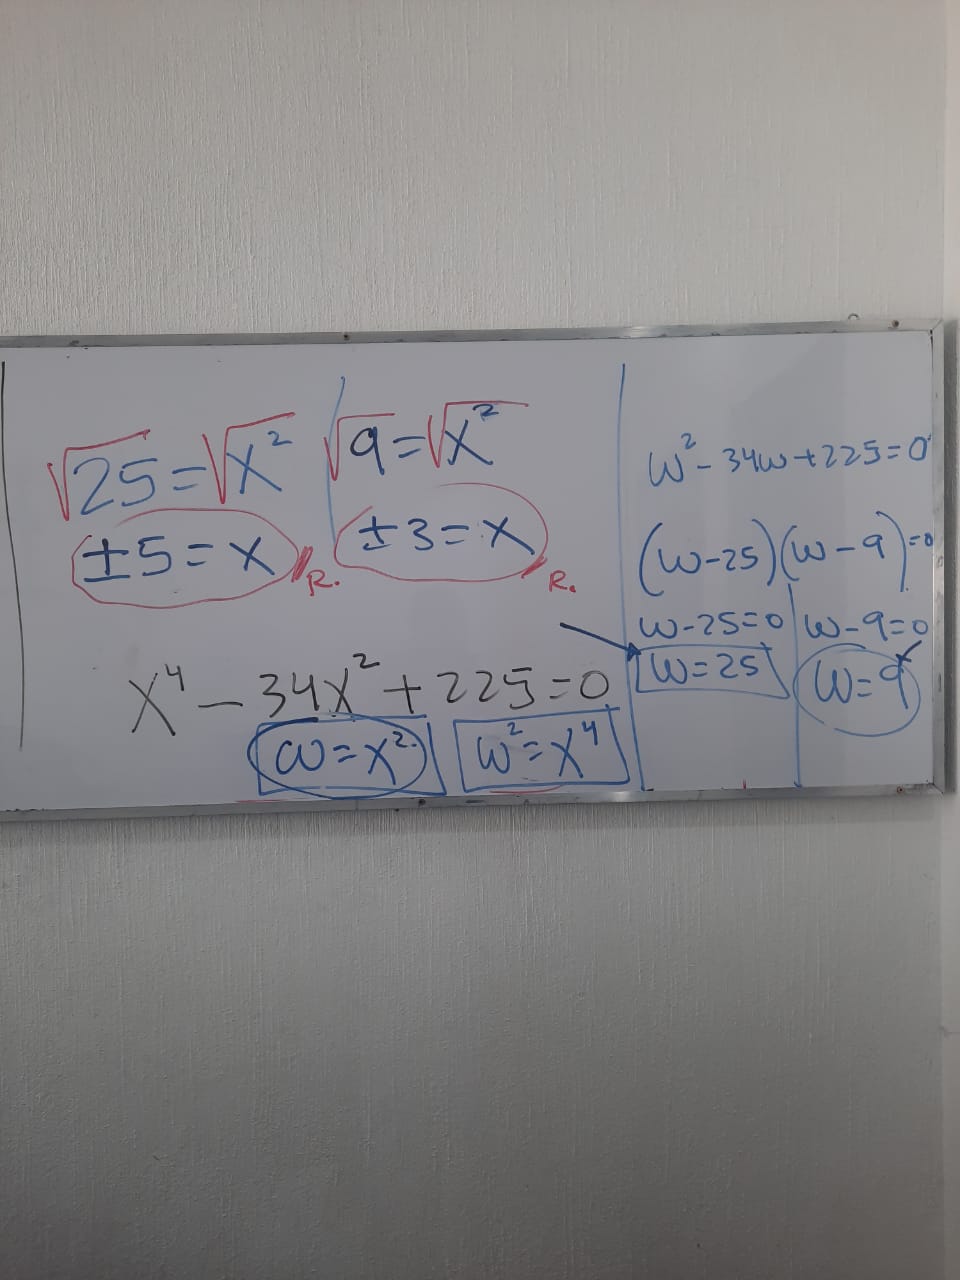 √25 = √x² √9 = √x²
±5 = x R. ±3 = x R.
x⁴ - 34x² + 225 = 0
w = x² w² = x⁴
w² - 34w + 225 = 0
(w - 25)(w - 9) = 0
w - 25 = 0 w - 9 = 0
w = 25 w = 9